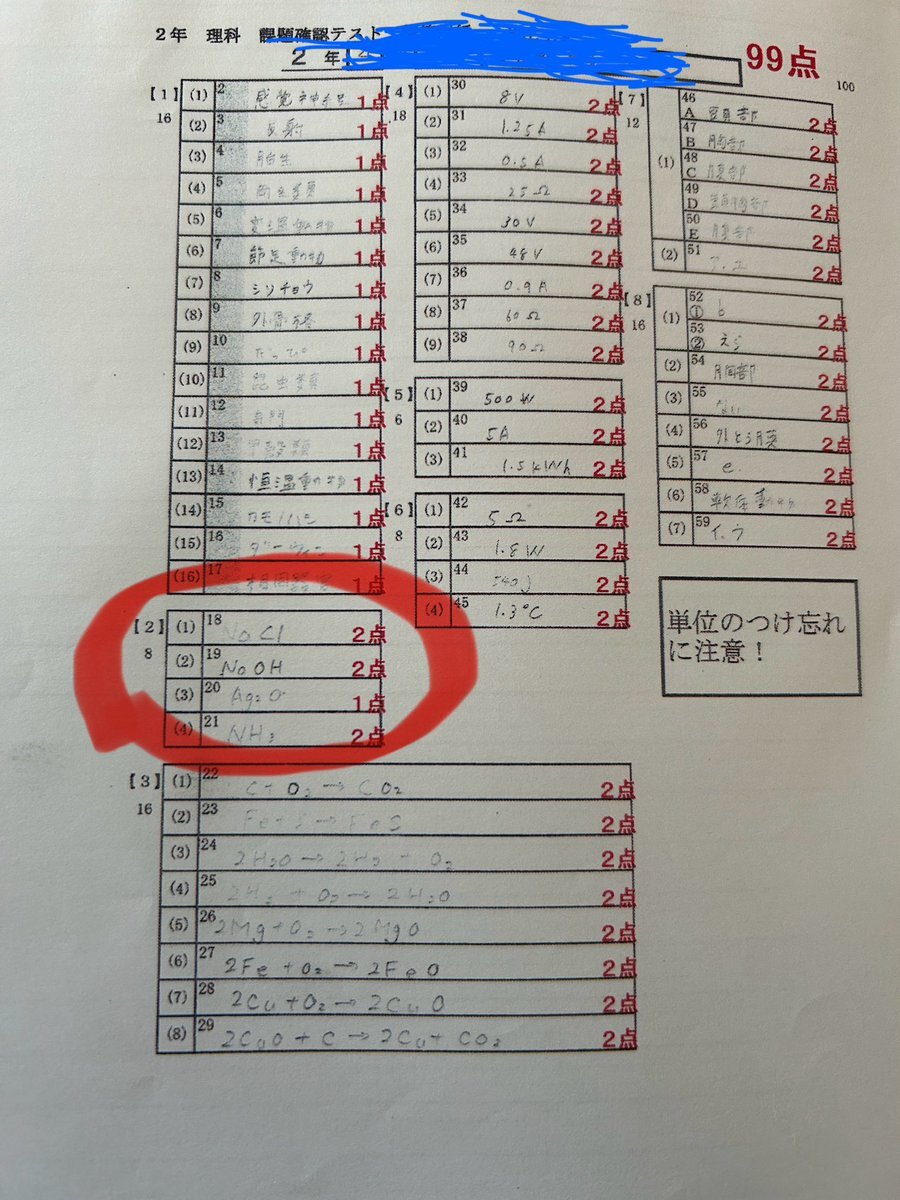 2年 理科 課題確認テスト
2 年
99点
100
【1】
16
(1) 2 感覚神経 1点
(2) 3 反射 1点
(3) 4 胎生 1点
(4) 5 両生類 1点
(5) 6 変温動物 1点
(6) 7 節足動物 1点
(7) 8 シソチョウ 1点
(8) 9 外骨格 1点
(9) 10 だっぴ 1点
(10) 11 昆虫類 1点
(11) 12 気門 1点
(12) 13 甲殻類 1点
(13) 14 恒温動物 1点
(14) 15 カモノハシ 1点
(15) 16 ダーウィン 1点
(16) 17 相同器官 1点
【2】
8
(1) 18 NaCl 2点
(2) 19 NaOH 2点
(3) 20 Ag2O 1点
(4) 21 NH3 2点
【3】
16
(1) 22 C + O2 → CO2 2点
(2) 23 Fe + S → FeS 2点
(3) 24 2H2O → 2H2 + O2 2点
(4) 25 2H2 + O2 → 2H2O 2点
(5) 26 2Mg + O2 → 2MgO 2点
(6) 27 2Fe + O2 → 2FeO 2点
(7) 28 2Cu + O2 → 2CuO 2点
(8) 29 2CuO + C → 2Cu + CO2 2点
【4】
18
(1) 30 8V 2点
(2) 31 1.25A 2点
(3) 32 0.5A 2点
(4) 33 25Ω 2点
(5) 34 30V 2点
(6) 35 48V 2点
(7) 36 0.9A 2点
(8) 37 60Ω 2点
(9) 38 90Ω 2点
【5】
6
(1) 39 500W 2点
(2) 40 5A 2点
(3) 41 1.5kWh 2点
【6】
8
(1) 42 5Ω 2点
(2) 43 1.8W 2点
(3) 44 540J 2点
(4) 45 1.3℃ 2点
【7】
12
(1)
46 A 頭部 2点
47 B 胸部 2点
48 C 腹部 2点
49 D 頭胸部 2点
50 E 腹部 2点
(2) 51 ア、エ 2点
【8】
16
(1)
52 ① b 2点
53 ② えら 2点
(2) 54 胴部 2点
(3) 55 ない 2点
(4) 56 外とう膜 2点
(5) 57 e. 2点
(6) 58 軟体動物 2点
(7) 59 イ、ウ 2点
単位のつけ忘れ
に注意！